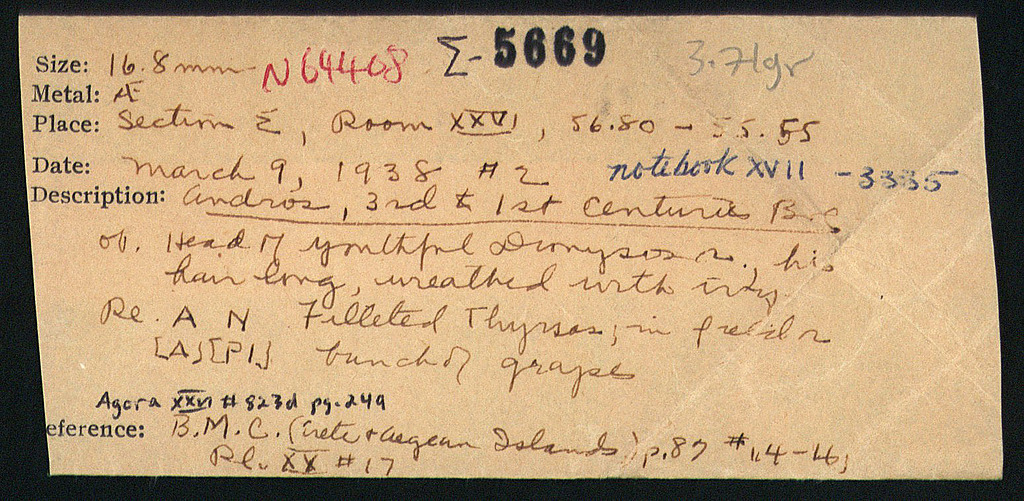 Size: 16.8 mm N64408 Σ- 5669 3.71gr
Metal: Æ
Place: Section Σ, Room XXVI, 56.80 – 55.55
Date: March 9, 1938 #2 notebook XVII - 3335
Description: Andros, 3rd to 1st centuries B.C.
ob. Head of youthful Dionysos r., his
hair long, wreathed with ivy.
Re. A N Filleted Thyrsos; in field r
[A][PI] bunch of grapes
Agora XXVI #823d pg. 249
eference: B.M.C. (Crete + Aegean Islands) p.87 #14-16;
Pl. XX #17